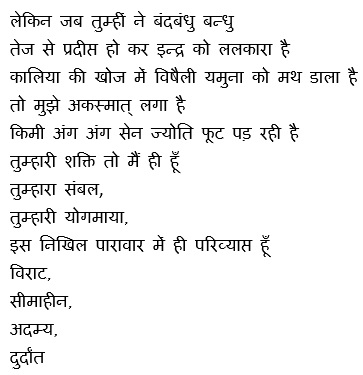 लेकिन जब तुम्हीं ने बंदबंधु बन्धु
तेज से प्रदीस हो कर इन्द्र को ललकारा है
कालिया की खोज में विषैली यमुना को मथ डाला है
तो मुझे अकस्मात् लगा है
किमी अंग अंग सेन ज्योति फूट पड़ रही है
तुम्हारी शक्ति तो मैं ही हूँ
तुम्हारा संबल,
तुम्हारी योगमाया,
इस निखिल पारावार में ही परिव्यास हूँ
विराट,
सीमाहीन,
अदम्य,
दुर्दांत